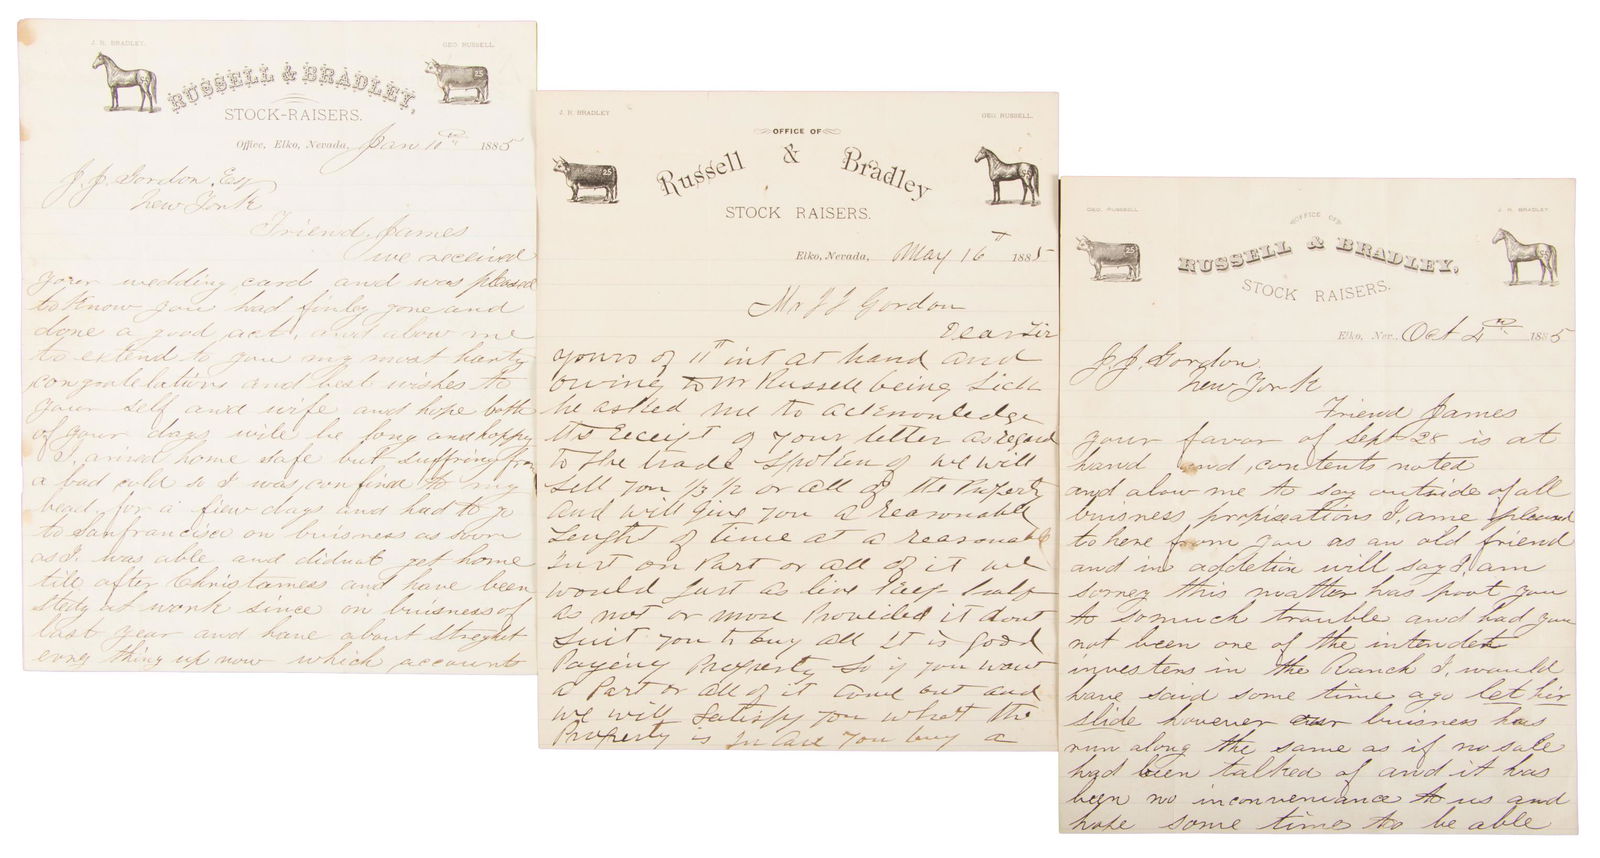 J. R. BRADLEY.
GEO. RUSSELL.
25
RUSSELL & BRADLEY,
STOCK-RAISERS.
Office, Elko, Nevada, Jan 10th 1885
J. J. Gordon, Esq
New York
Friend James
we received
your wedding card and was pleased
to Know you had finley gone and
done a good act, and alow me
to extend to you my most harty
congratelations and best wishes to
your self and wife and hope both
of your days will be long and happy
I, arived home safe but suffring from
a bad cold so I was confined to my
bead for a fiew days and had to go
to Sanfrancisco on buisness as soon
as I was able and didnot get home
till after Christamess and have been
stedy at work since on buisness of
last year and have about streight
evry thing up now which accounts
J. R. BRADLEY
GEO. RUSSELL.
OFFICE OF
25
Russell & Bradley
STOCK RAISERS.
Elko, Nevada, May 16th 1885
Mr J J Gordon
Dear Sir
yours of 11th int at hand and
owing to Mr Russell being Sick
he asked me to acknowledge
the receipt of your letter as regard
to the trade Spoken of we will
Sell you 1/3 1/2 or all of the Property
and will give you a reasonable
Lenght of time at a reasonable
Intrst on Part or all of it we
would Just as live Keep half
as not or more Provided it dont
Suit you to buy all it is good
Paying Property So if you want
a Part or all of it Come out and
we will Satisfy you what the
Property is in Case you buy a
GEO. RUSSELL
J. R. BRADLEY
OFFICE OF
25
RUSSELL & BRADLEY,
STOCK RAISERS.
Elko, Nev., Oct 2nd 1885
J. J. Gordon
New York
Friend James
your favor of Sept 28 is at
hand and, contents noted
and alow me to say outside of all
buisness propisations I, ame pleased
to here from you as an old friend
and in addetion will say I, am
sorrey this matter has poot you
to somuch trouble and had you
not been one of the intendet
investers in the Ranch I, would
have said some time ago let hir
slide however our buisness has
run along the same as if no sale
had been talked of and it has
been no inconveniance to us and
hope some time to be able